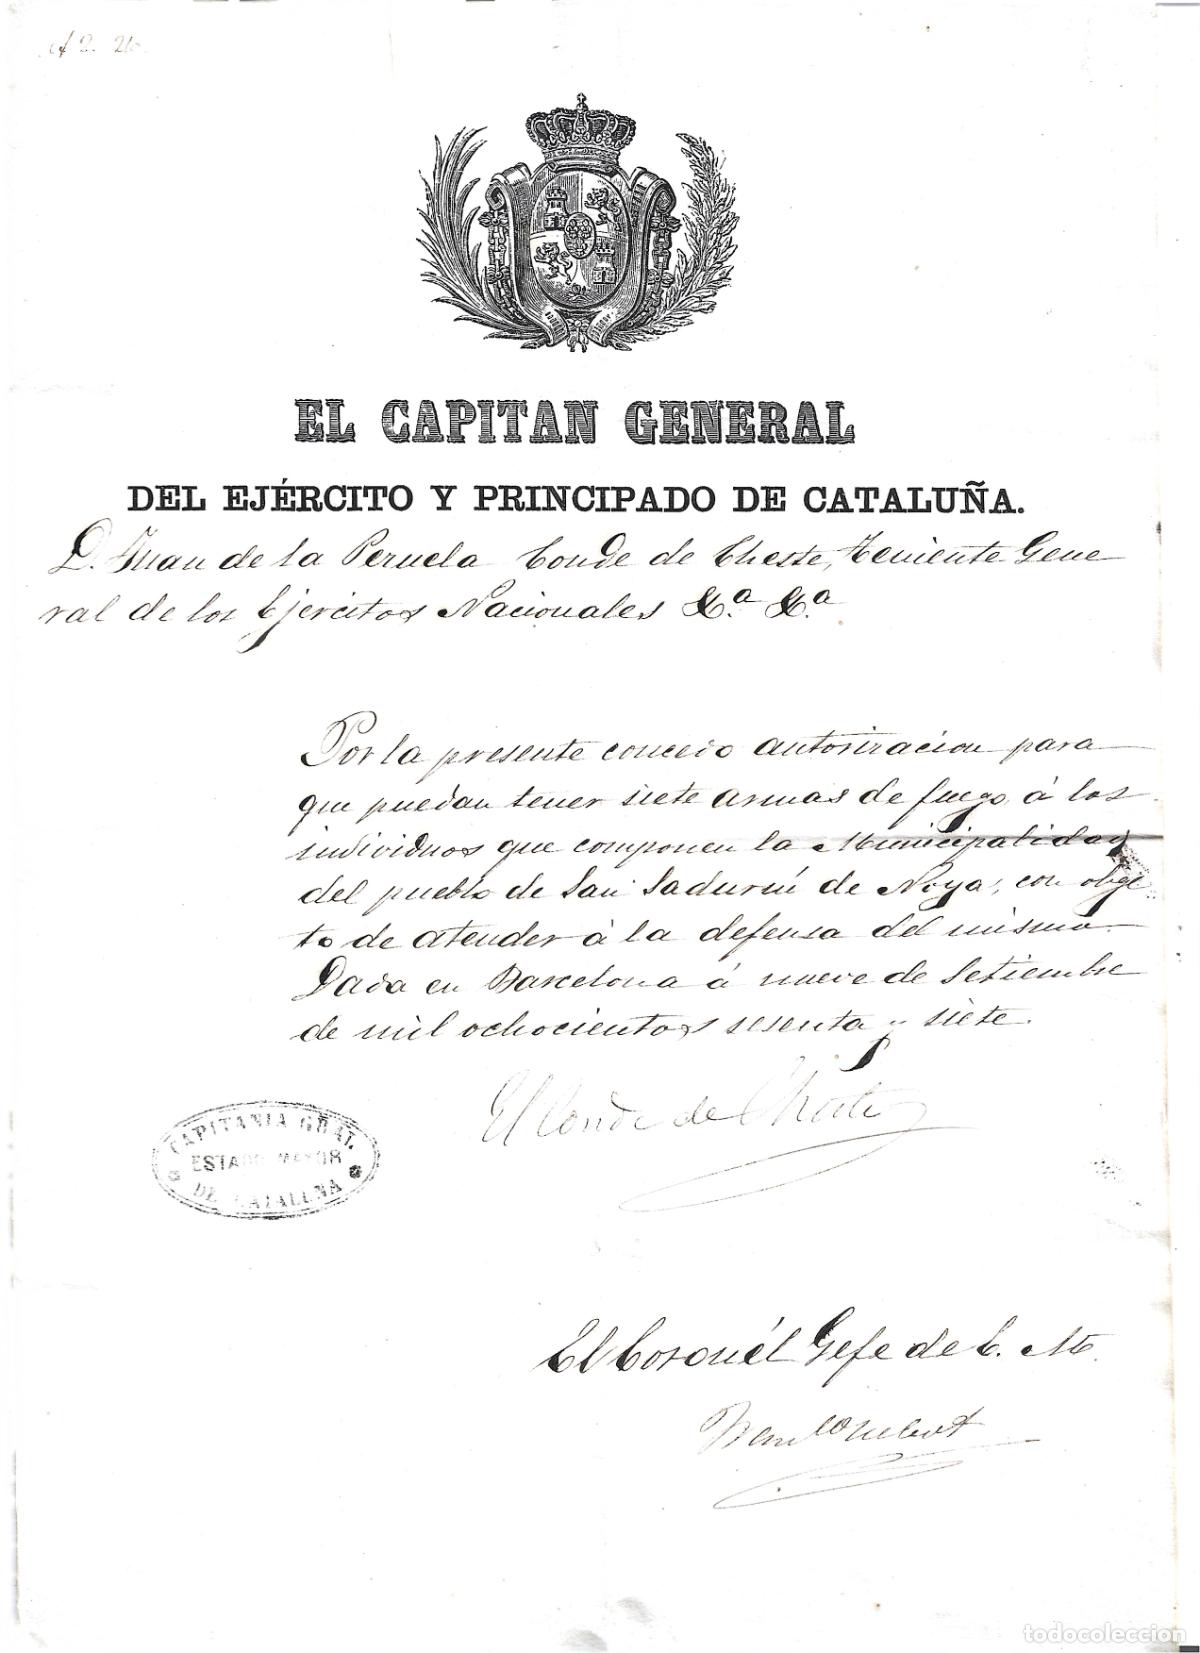 EL CAPITAN GENERAL
DEL EJÉRCITO Y PRINCIPADO DE CATALUÑA.
D. Juan de la Pezuela Conde de Cheste, Teniente Gene
ral de los Ejercitos Nacionales &.a &.a
Por la presente concedo autorizacion para
que puedan tener siete armas de fuego, á los
individuos que componen la Municipalidad
del pueblo de San Sadurní de Noya, con obge
to de atender á la defensa del mismo.
Dada en Barcelona á nueve de Setiembre
de mil ochocientos sesenta y siete.
El Conde de Cheste
CAPITANIA GRAL
ESTADO MAYOR
DE CATALUÑA
El Coronél Gefe de E. M.
todocoleccion